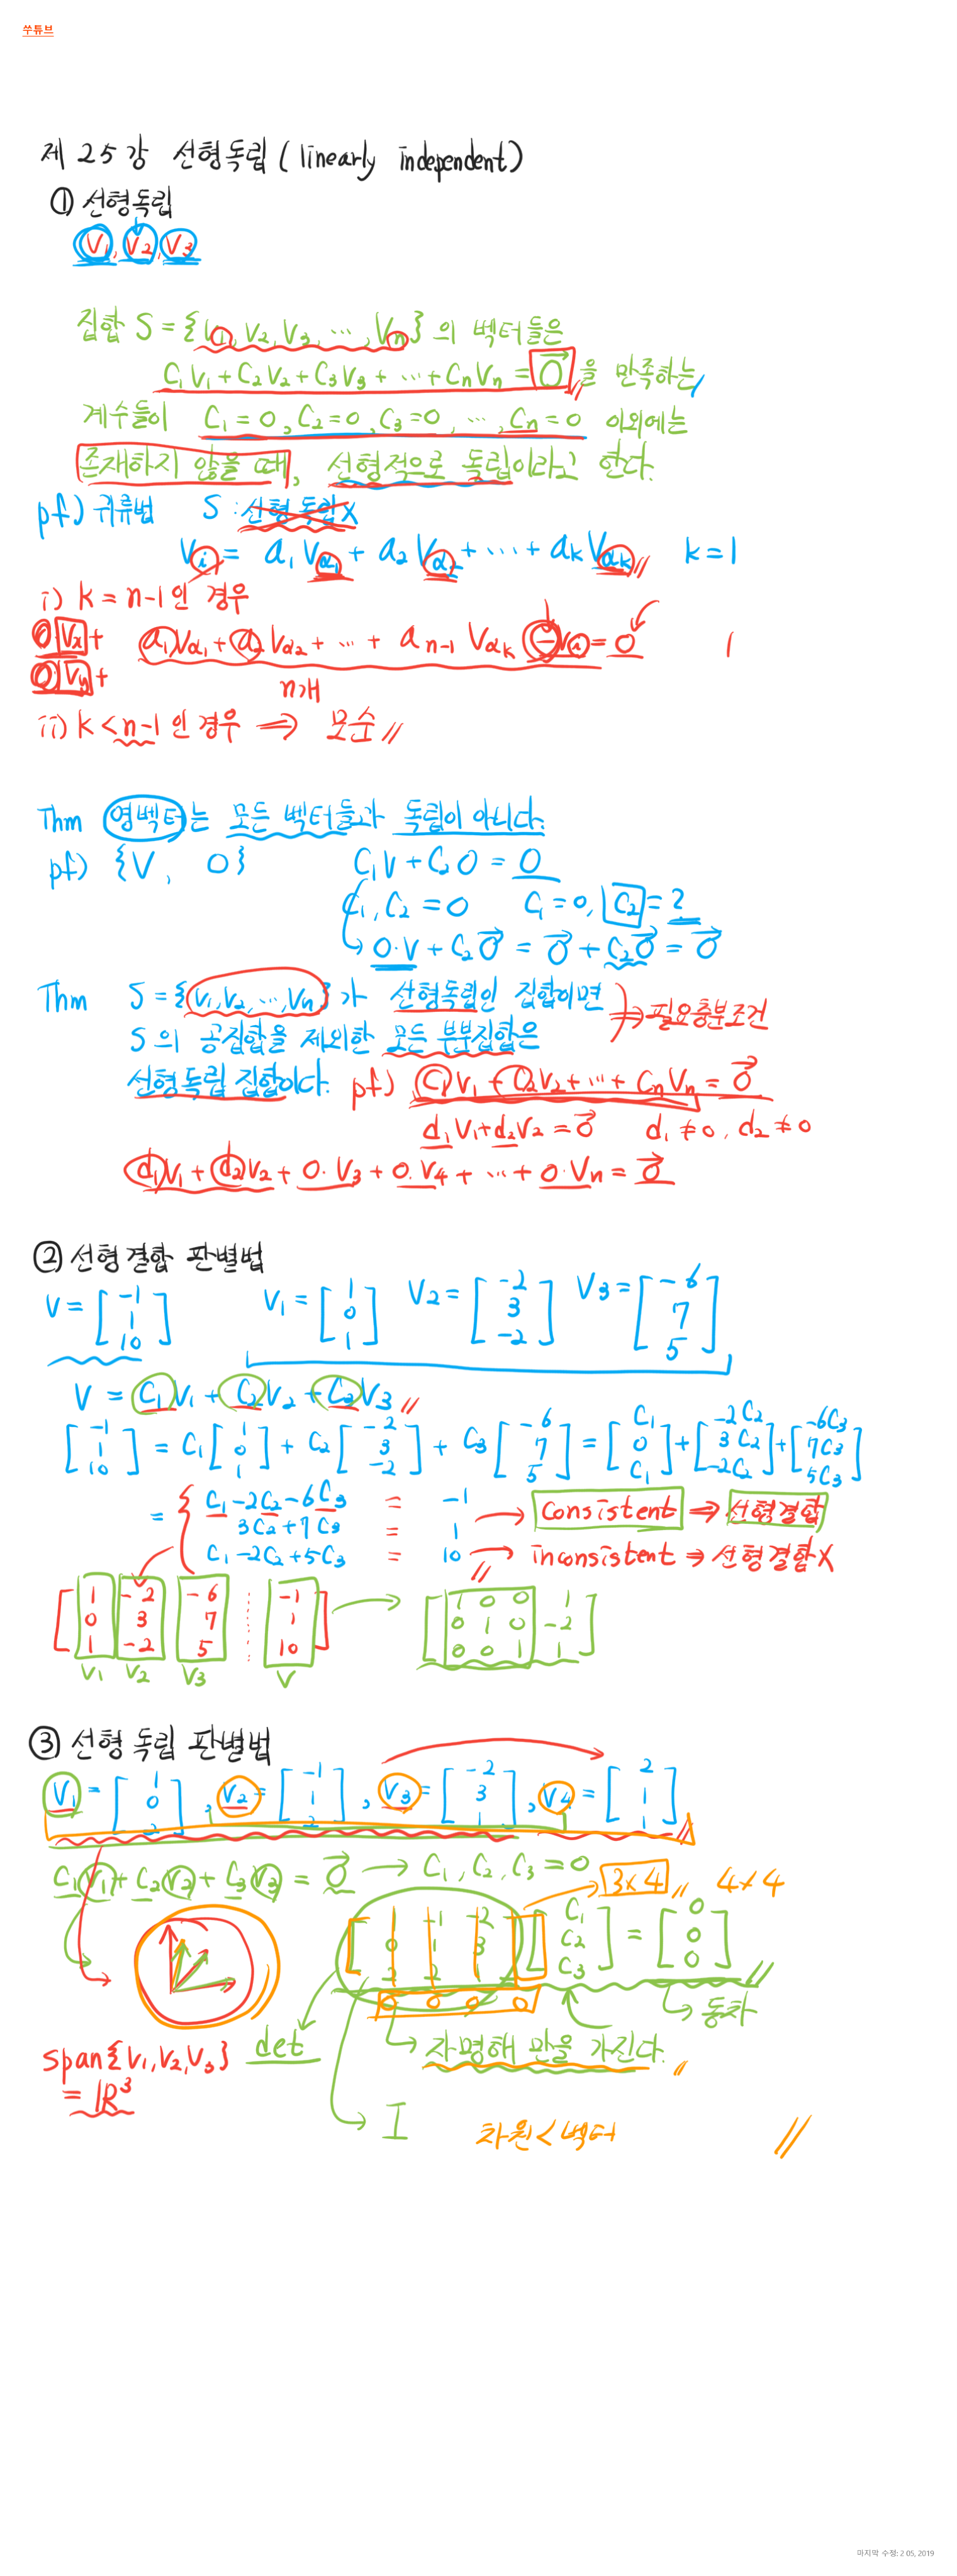 쑤튜브
제 25강 선형독립 (linearly independent)
① 선형독립
V₁, V₂, V₃
집합 S = {V₁, V₂, V₃, ⋯, Vn} 의 벡터들은
C₁V₁ + C₂V₂ + C₃V₃ + ⋯ + CnVn = 0⃗ 을 만족하는
계수들이 C₁ = 0, C₂ = 0, C₃ = 0, ⋯, Cn = 0 이외에는
존재하지 않을 때, 선형적으로 독립이라고 한다.
pf) 귀류법 S : 선형 독립 X
Vi = a₁Vα₁ + a₂Vα₂ + ⋯ + akVαk k = 1
i) k = n-1 인 경우
0 Vx + a₁Vα₁ + a₂Vα₂ + ⋯ + an-1 Vαk - Vi = 0
0 Vy +
n개
ii) k < n-1 인 경우 ⇒ 모순
Thm 영벡터는 모든 벡터들과 독립이 아니다.
pf) {V, 0} C₁V + C₂0 = 0
C₁, C₂ = 0 C₁ = 0, C₂ = ?
0·V + C₂0⃗ = 0⃗ + C₂0⃗ = 0⃗
Thm S = {V₁, V₂, ⋯, Vn} 가 선형독립인 집합이면 ⇒ 필요충분조건
S 의 공집합을 제외한 모든 부분집합은
선형독립 집합이다. pf) C₁V₁ + C₂V₂ + ⋯ + CnVn = 0⃗
d₁V₁ + d₂V₂ = 0⃗ d₁ ≠ 0, d₂ ≠ 0
d₁V₁ + d₂V₂ + 0·V₃ + 0·V₄ + ⋯ + 0·Vn = 0⃗
② 선형결합 판별법
V = [-1 1 10] V₁ = [1 0 1] V₂ = [-2 3 -2] V₃ = [-6 7 5]
V = C₁V₁ + C₂V₂ + C₃V₃
[-1 1 10] = C₁[1 0 1] + C₂[-2 3 -2] + C₃[-6 7 5] = [C₁ 0 C₁] + [-2C₂ 3C₂ -2C₂] + [-6C₃ 7C₃ 5C₃]
= { C₁ - 2C₂ - 6C₃ = -1
3C₂ + 7C₃ = 1 → Consistent ⇒ 선형결합
C₁ - 2C₂ + 5C₃ = 10 → inconsistent ⇒ 선형결합 X
1 -2 -6 -1 → 1 0 0 1
0 3 7 1 0 1 0 -2
1 -2 5 10 0 0 1 1
V₁ V₂ V₃ V
③ 선형 독립 판별법
V₁ = [1 0 2], V₂ = [-1 1 2], V₃ = [-2 3 1], V₄ = [2 1 1]
C₁V₁ + C₂V₂ + C₃V₃ = 0⃗ → C₁, C₂, C₃ = 0 3×4 4×4
1 -1 -2 C₁ = 0
0 1 3 C₂ 0
2 2 1 C₃ 0
0 0 0 0
동차
det 자명해 만을 가진다.
span{V₁, V₂, V₃}
= ℝ³
I
차원 < 벡터
마지막 수정: 2 05, 2019